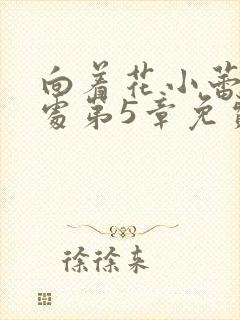 向着花小蕾
处第5章免费
徐徐来